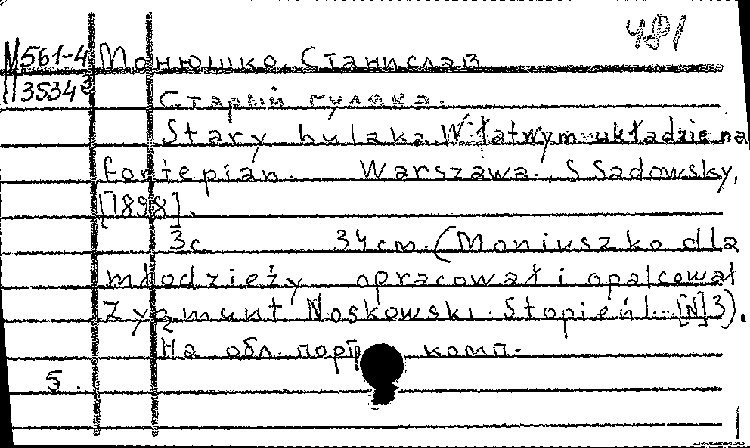 481
М 561-4 Монюшко, Станислав
3534
Старый гуляка.
Stary hulaka. W łatwym układzie na
fortepian. Warszawa, S Sadowsky,
[1898].
3с 34 см. (Moniuszko dla
młodzieży opracował i opalcował
Zygmunt Noskowski. Stopień I. [N] 3).
На обл. портр. комп.
5.